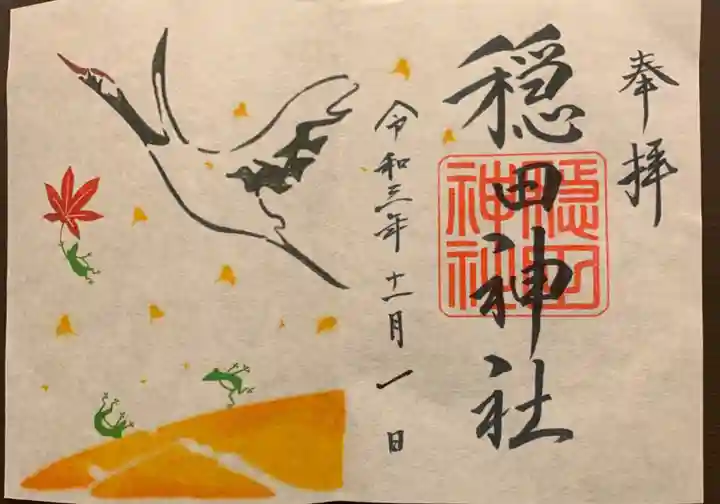 奉拝
穏田神社
隠田
神社
令和三年十一月一日